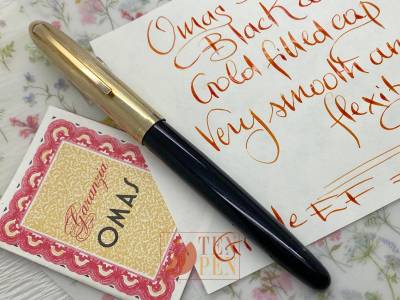 Omas
Black
Gold filled cap
Very smooth an
flexi
EF
Garanzia
OMAS
TUX
PEN